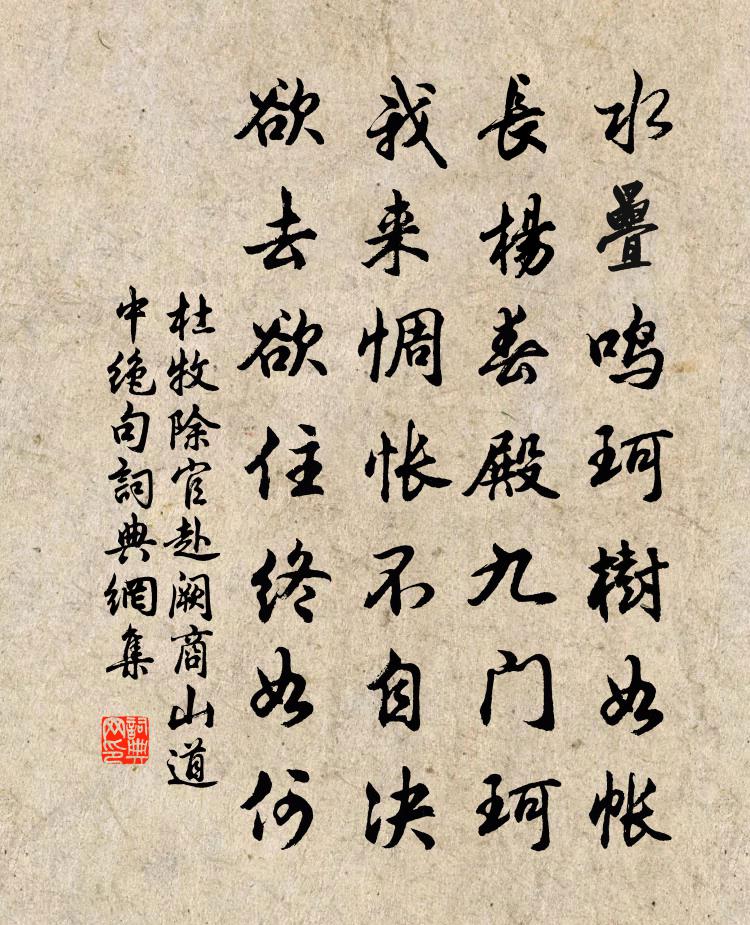 水疊鸣珂樹如帐
長楊春殿九门珂
我来惆怅不自决
欲去欲住终如何
杜牧除官赴阙商山道
中绝句詞典網集
詞典网印